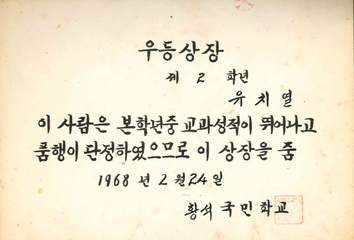 우등상장
제 2 학년
유 치 열
이 사람은 본학년중 교과성적이 뛰어나고
품행이 단정하였으므로 이 상장을 줌
1968 년 2 월 24 일
황석 국민학교